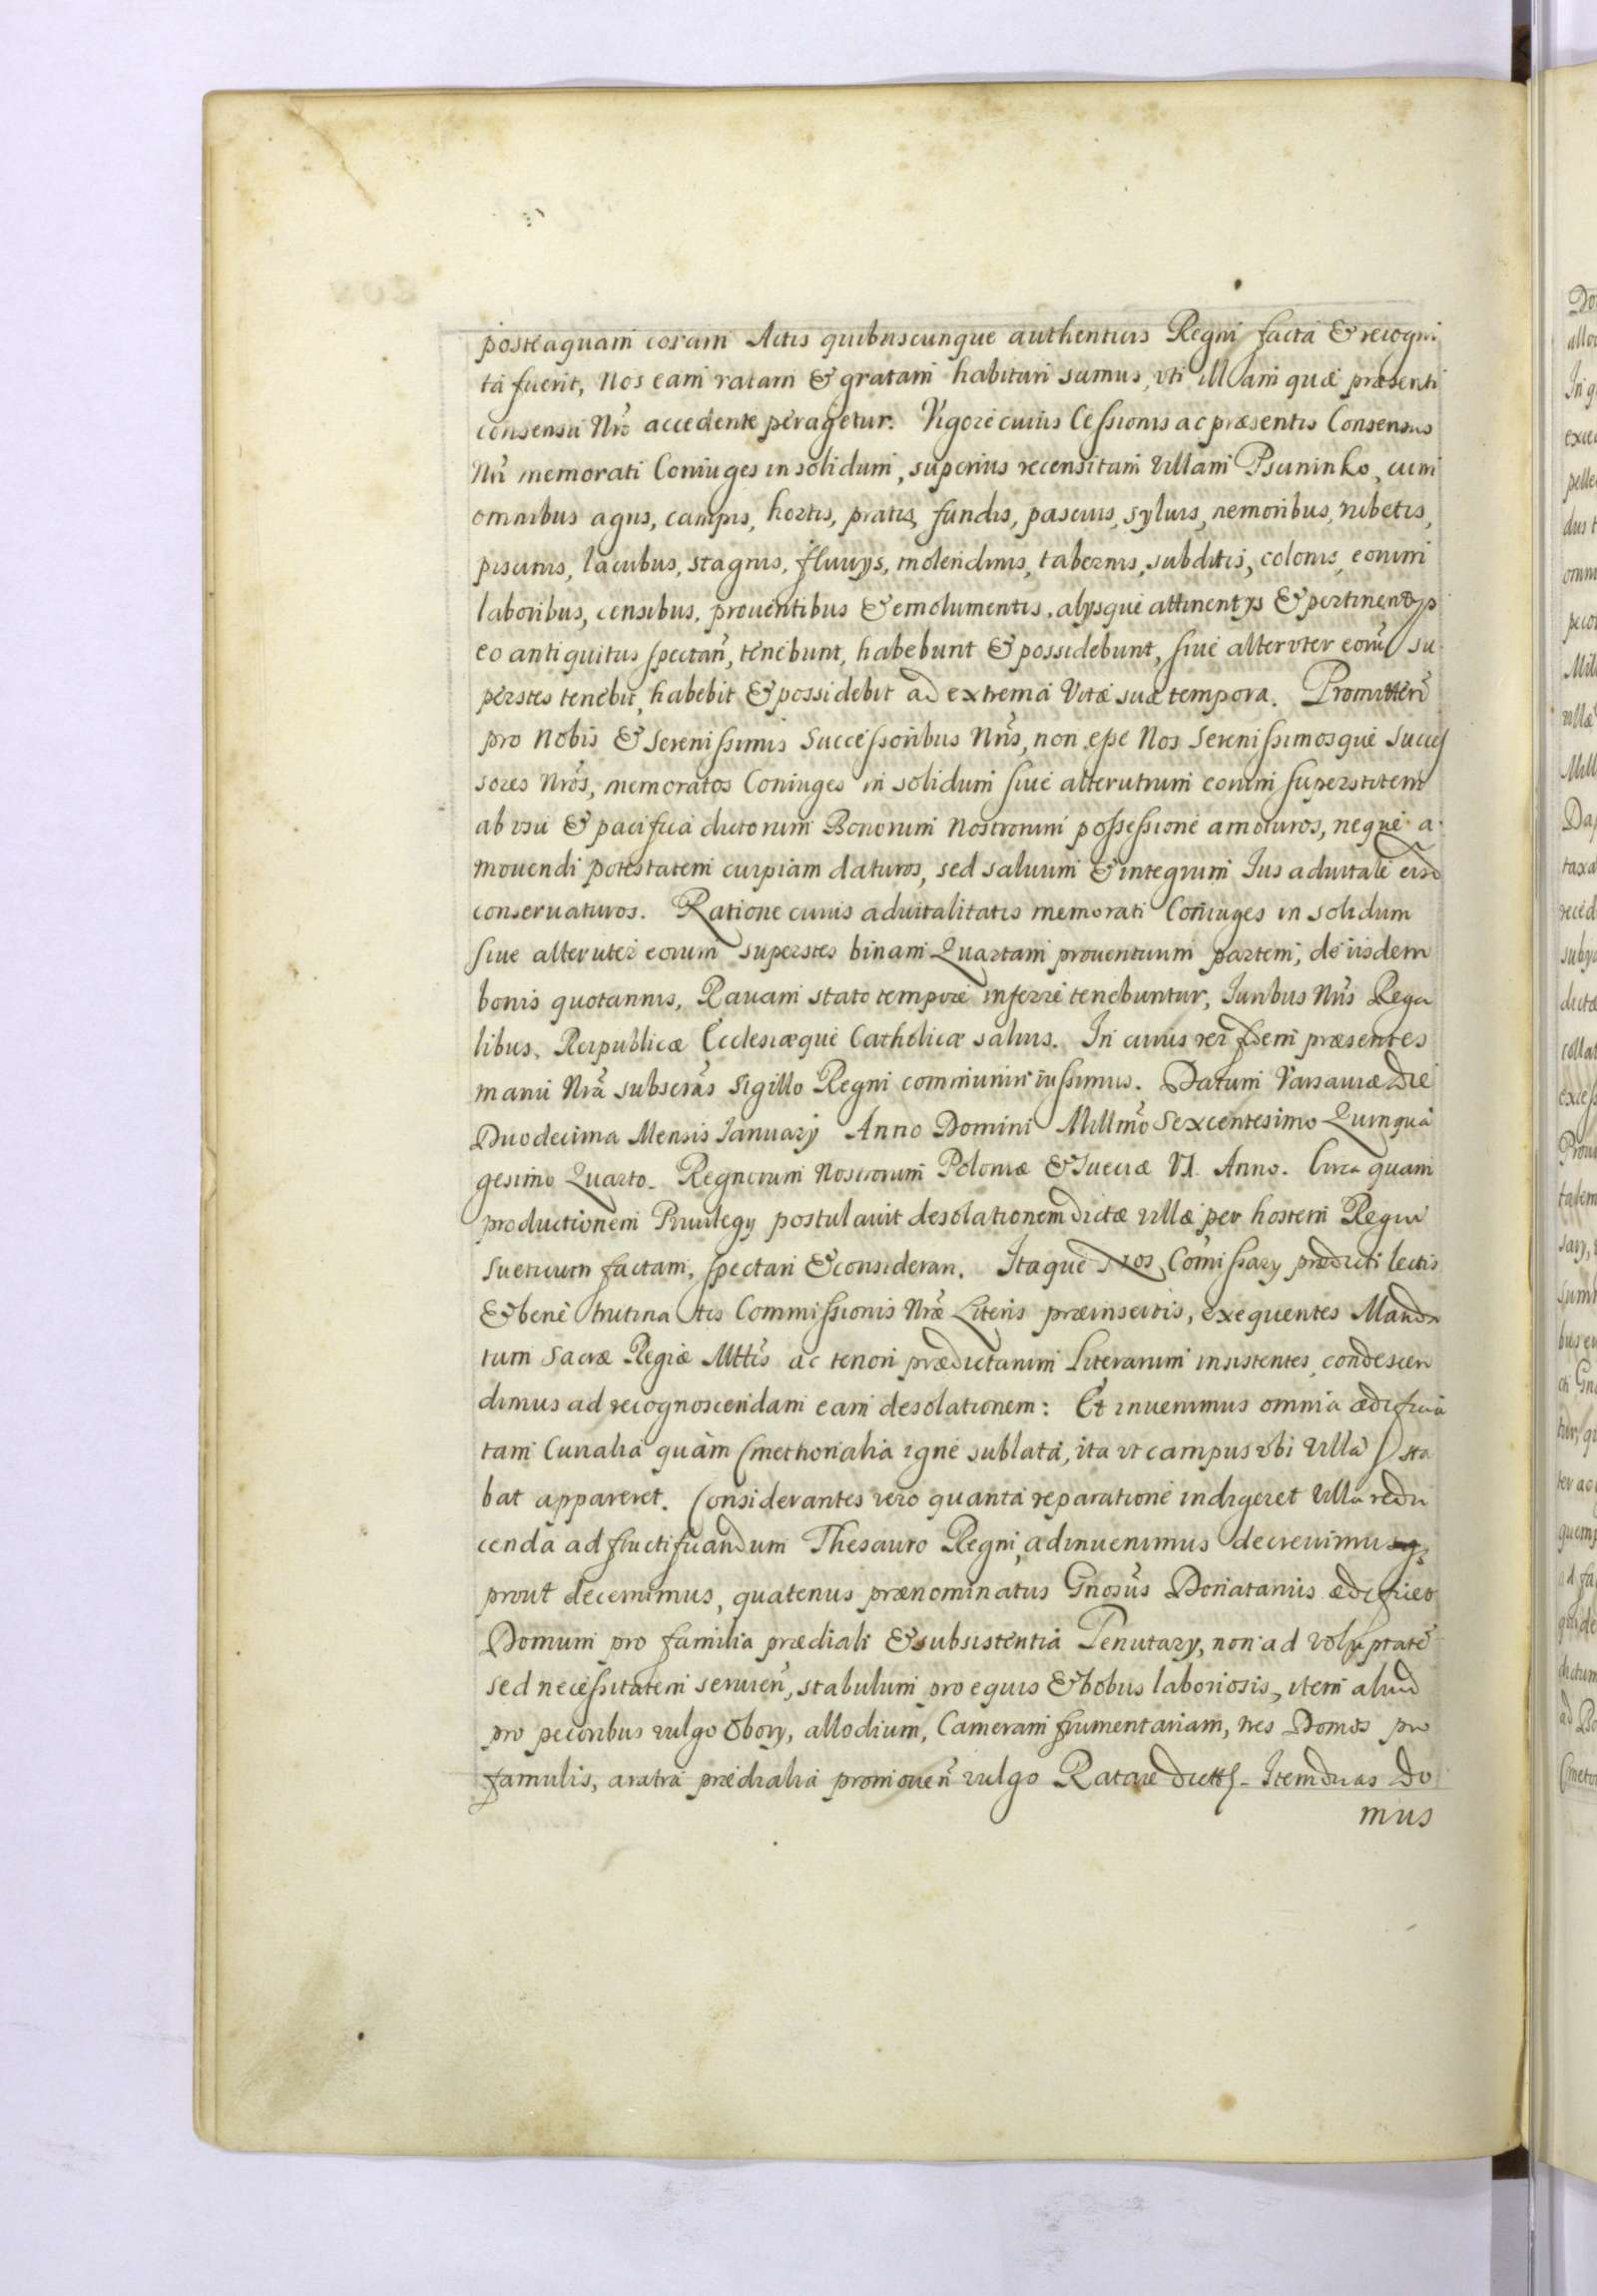 posteaquam coram Actis quibuscunque authenticis Regni facta & recogni
ta fuerit, Nos eam ratam & gratam habituri sumus, vti illam quæ præsenti
consensu Nrõ accedente peragetur. Vigore cuius Cessionis ac præsentis Consensus
Nrĩ memorati Coniuges in solidum, superius recensitam Villam Psuninko, cum
omnibus agris, campis, hortis, pratis, fundis, pascuis, syluis, nemoribus, rubetis,
piscinis, lacubus, stagnis, fluuijs, molendinis, tabernis, subditis, colonis, eorum
laboribus, censibus, prouentibus & emolumentis, alysque attinentys & pertinentys
eo antiquitus spectañ, tenebunt, habebunt & possidebunt, siue alteruter eorũ su
perstes tenebit, habebit & possidebit ad extrema Vitæ suæ tempora. Promitteñ
pro Nobis & Serenissimis Successoribus Nrĩs, non esse Nos Serenissimosque Succes
sores Nrõs, memoratos Coniuges in solidum siue alterutrum eorum superstitem
ab vsu & pacifica dictorum Bonorum Nostrorum possessione amoturos, neque a
mouendi potestatem cuipiam daturos, sed saluum & integrum Ius aduitale eisd
conseruaturos. Ratione cuius aduitalitatis memorati Coniuges in solidum
siue alteruter eorum superstes binam Quartam prouentuum partem, de iisdem
bonis quotannis, Rauam stato tempore inferre tenebuntur, Iuribus Nrĩs Rega
libus, Reipublicæ Ecclesiæque Catholicæ saluis. In cuius rei fidem præsentes
manu Nrã subscrãs Sigillo Regni communiri iussimus. Datum Varsauiæ Die
Duodecima Mensis Ianuary Anno Domini Millmõ Sexcentesimo Quinqua
gesimo Quarto. Regnorum Nostrorum Poloniæ & Sueciæ VI. Anno. Circa quam
productionem Priuilegy postulauit desolationem dictæ villæ per hostem Regni
Suetium factam, spectari & considerari. Itaque Nos Com̃issary prædicti lectis
& bene trutinatis Commissionis Nrãe Literis præinsertis, exequentes Manda
tum Sacræ Regiæ Mttĩs ac tenori prædictarum Literarum insistentes, condescen
dimus ad recognoscendam eam desolationem: Et inuenimus omnia ædificia
tam Curialia quàm Cmethonalia igne sublata, ita vt campus vbi Villa sta
bat appareret. Considerantes vero quanta reparatione indigeret Villa redu
cenda ad fructificandum Thesauro Regni, adinuenimus decreuimusq;
prout decernimus, quatenus prænominatus Gnosũs Donatarius ædificet
Domum pro familia prædiali & subsistentia Tenutary, non ad voluptatẽ
sed necessitatem seruieñ, stabulum pro equis & bobus laboriosis, item aliud
pro pecoribus vulgo Obory, allodium, Cameram frumentariam, tres Domos pro
famulis, aratra prædialia promoueñ vulgo Rataie dictt. Item duas Do
mus